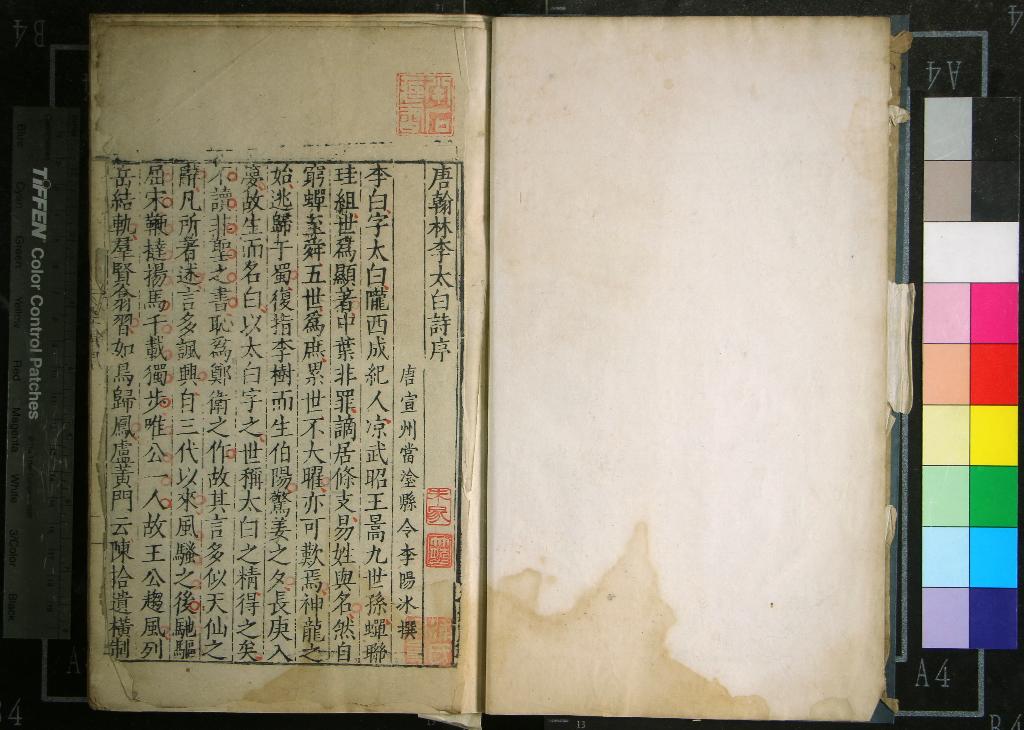 唐翰林李太白詩序
唐宣州當塗縣令李陽冰撰
李白字太白隴西成紀人凉武昭王暠九世孫蟬聯
珪組世爲顯著中葉非罪謫居條支易姓與名然自
窮蟬至舜五世爲庶累世不大曜亦可歎焉神龍之
始逃歸于蜀復指李樹而生伯陽驚姜之夕長庚入
夢故生而名白以太白字之世稱太白之精得之矣
不讀非聖之書恥爲鄭衛之作故其言多似天仙之
辭凡所著述言多諷興自三代以來風騷之後馳驅
屈宋鞭撻揚馬千載獨步唯公一人故王公趨風列
岳結軌羣賢翕習如鳥歸鳳盧黃門云陳拾遺橫制
TIFFEN Color Control Patches
Blue
Cyan
Green
Yellow
Red
Magenta
White
3/Color
Black
A4
A4
B4